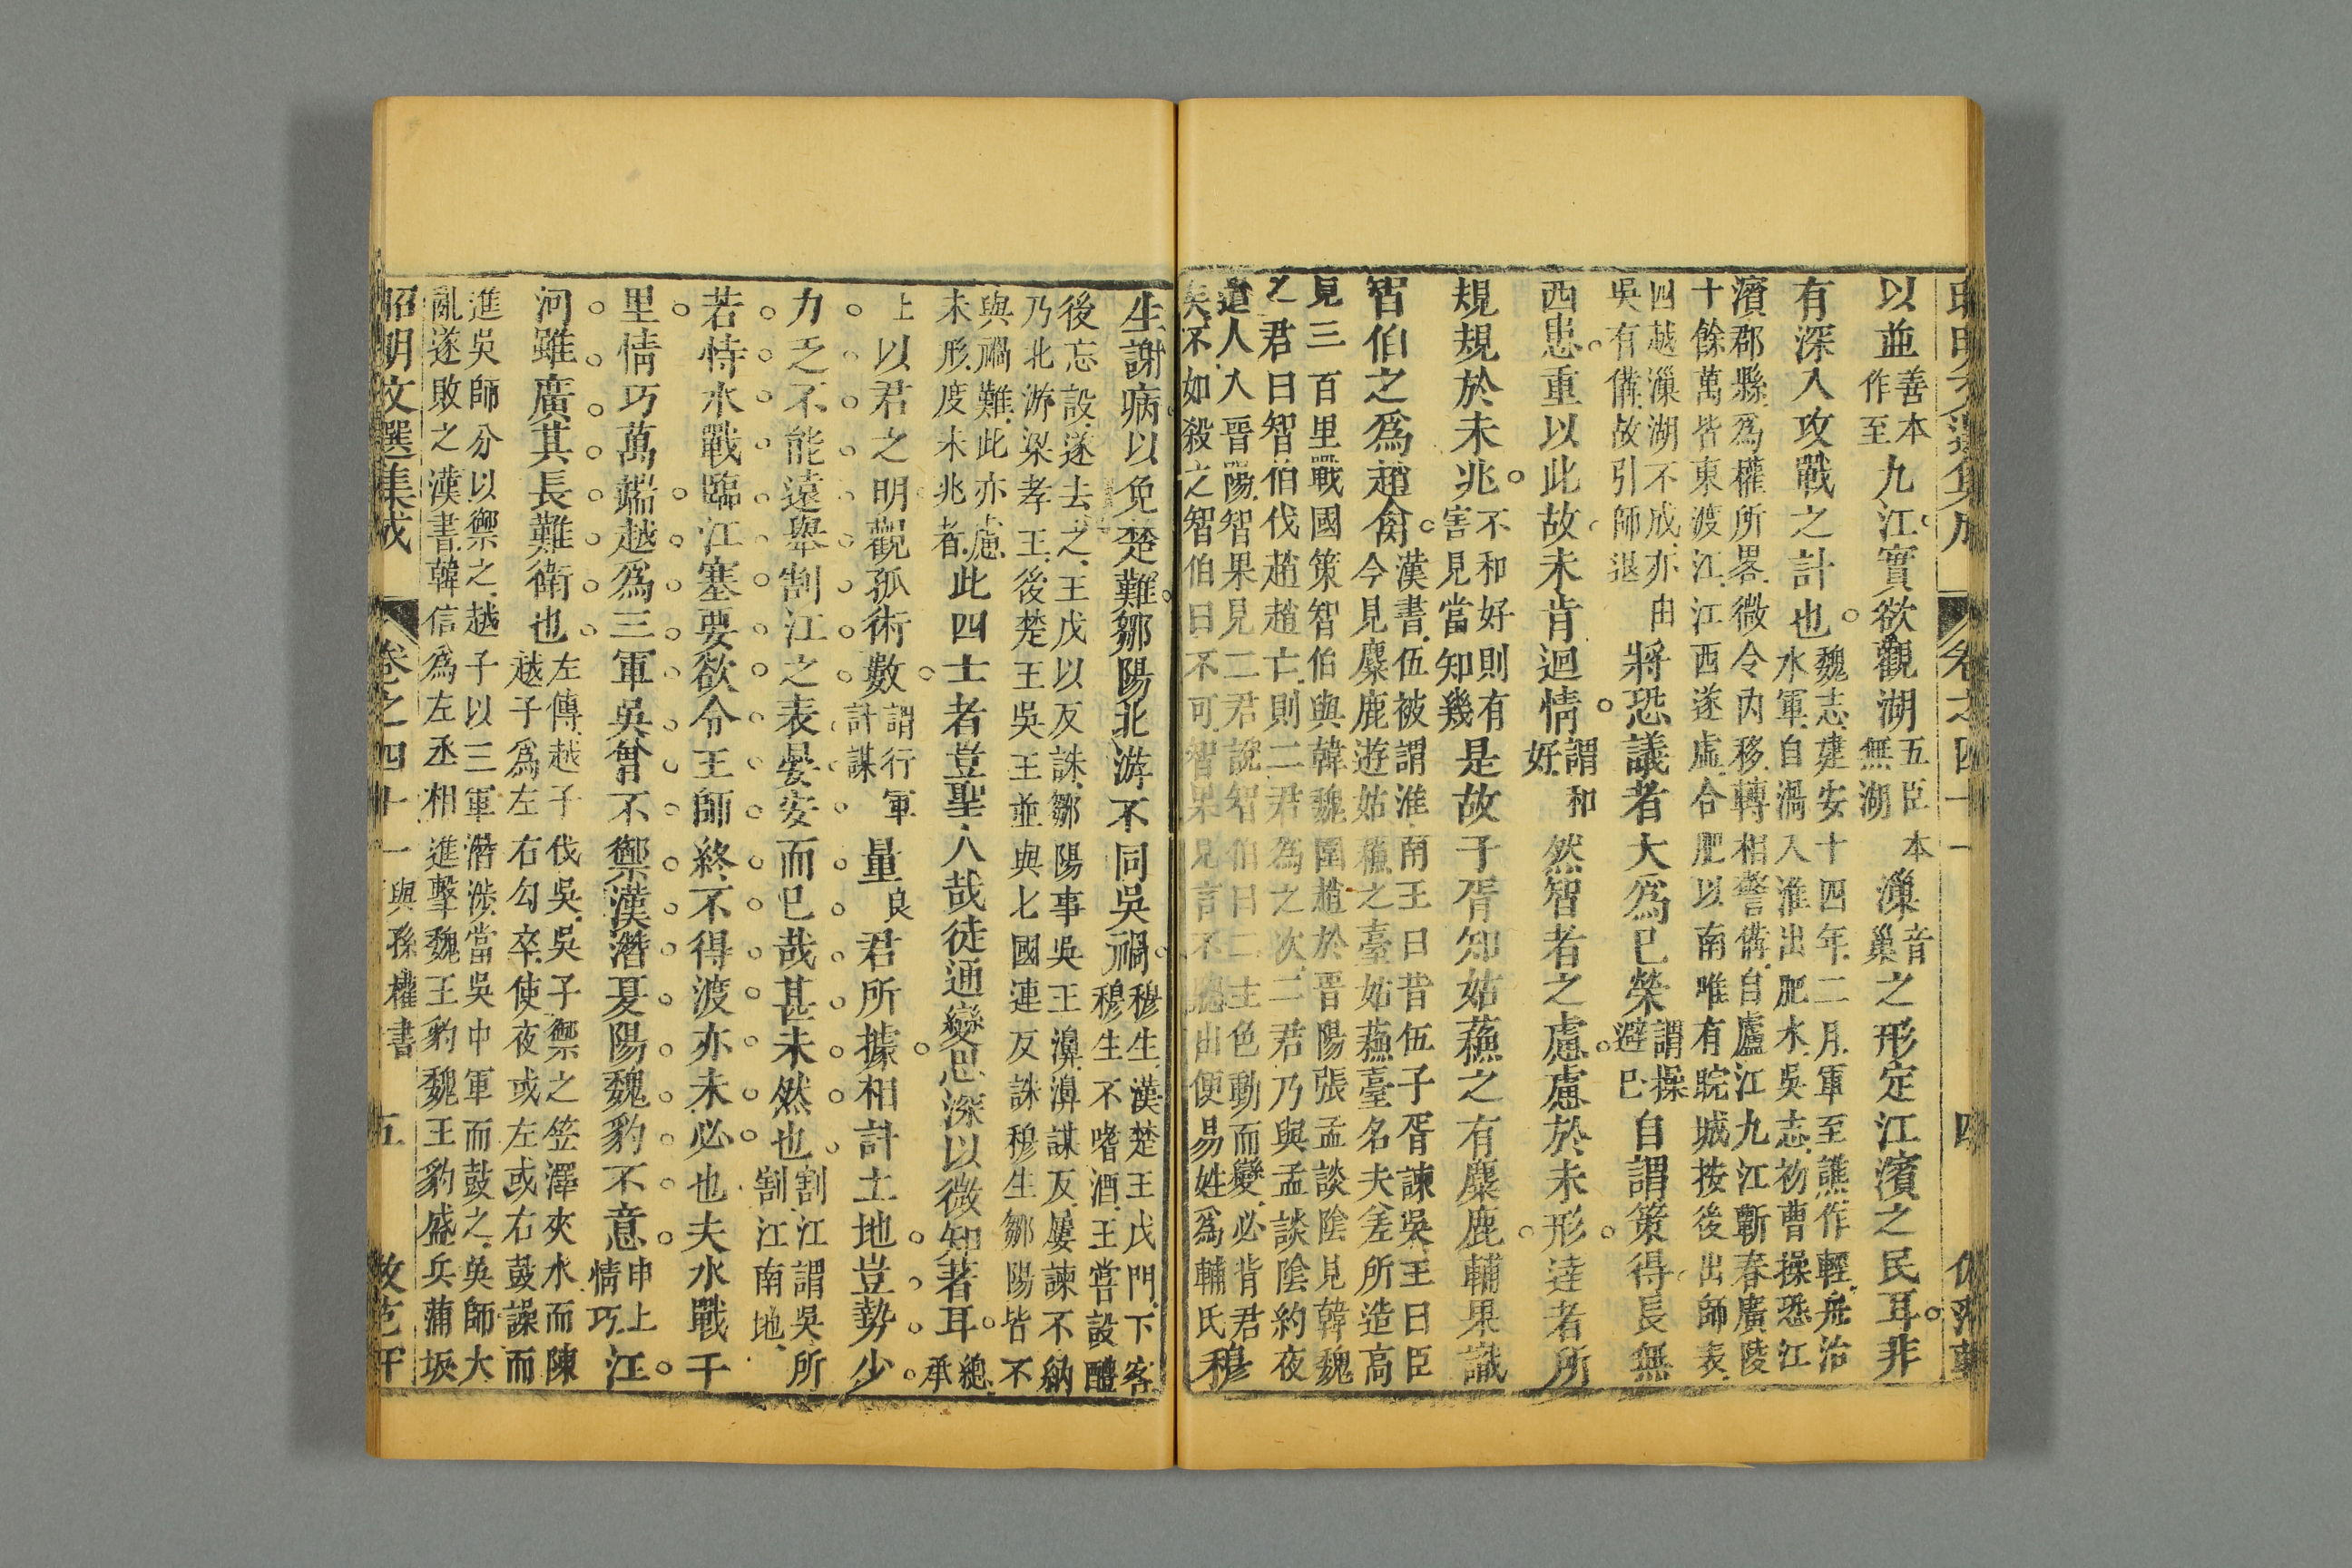 昭明文選集成 卷之四十一 四
以並善本作至九江實欲觀湖五臣本無湖漅音巢之形定江濱之民耳非
有深入攻戰之計也魏志建安十四年二月軍至譙作輕舟治水軍自渦入淮出肥水吳志初曹操恐江
濱郡縣爲權所畧微令内移轉相警備自廬江九江蘄春廣陵十餘萬皆東渡江江西遂虛合肥以南唯有睆城按後出師表
四越漅湖不成亦由吳有備故引師退將恐議者大爲已榮謂操避已自謂策得長無
西患重以此故未肯迴情謂和好然智者之慮慮於未形達者所
規規於未兆不和好則有害見當知幾是故子胥知姑蘓之有麋鹿輔果識
智伯之爲趙禽漢書伍被謂淮南王曰昔伍子胥諫吳王曰臣今見麋鹿遊姑蘓之臺姑蘓臺名夫差所造高
見三百里戰國策智伯與韓魏圍趙於晉陽張孟談陰見韓魏之君曰智伯伐趙趙亡則二君爲之次二君乃與孟談陰約夜
遣人入晉陽智果見二君說智伯曰二主色動而變必背君矣不如殺之智伯曰不可智果見言不聽出便易姓爲輔氏穆
生謝病以免楚難鄒陽北游不同吳禍穆生漢楚王戊門下客穆生不嗜酒王嘗設醴
後忘設遂去之王戊以反誅鄒陽事吳王濞濞謀反屢諫不納乃北游梁孝王後楚王吳王並與七國連反誅穆生鄒陽皆不
與禍難此亦慮未形度未兆者此四士者豈聖人哉徒通變思深以微知著耳總承
上以君之明觀孤術數謂行軍計謀量良君所據相計土地豈勢少
力乏不能遠舉割江之表晏安而已哉甚未然也割江謂吳所割江南地
若恃水戰臨江塞要欲令王師終不得渡亦未必也夫水戰千
里情巧萬端越爲三軍吳曾不禦漢潛夏陽魏豹不意申上情巧江
河雖廣其長難衛也左傳越子伐吳吳子禦之笠澤夾水而陳越子爲左右勾卒使夜或左或右鼓譟而
進吳師分以禦之越子以三軍潛涉當吳中軍而鼓之吳師大亂遂敗之漢書韓信爲左丞相進擊魏王豹魏王豹盛兵蒲坂
昭明文選集成 卷之四十一 與孫權書 五